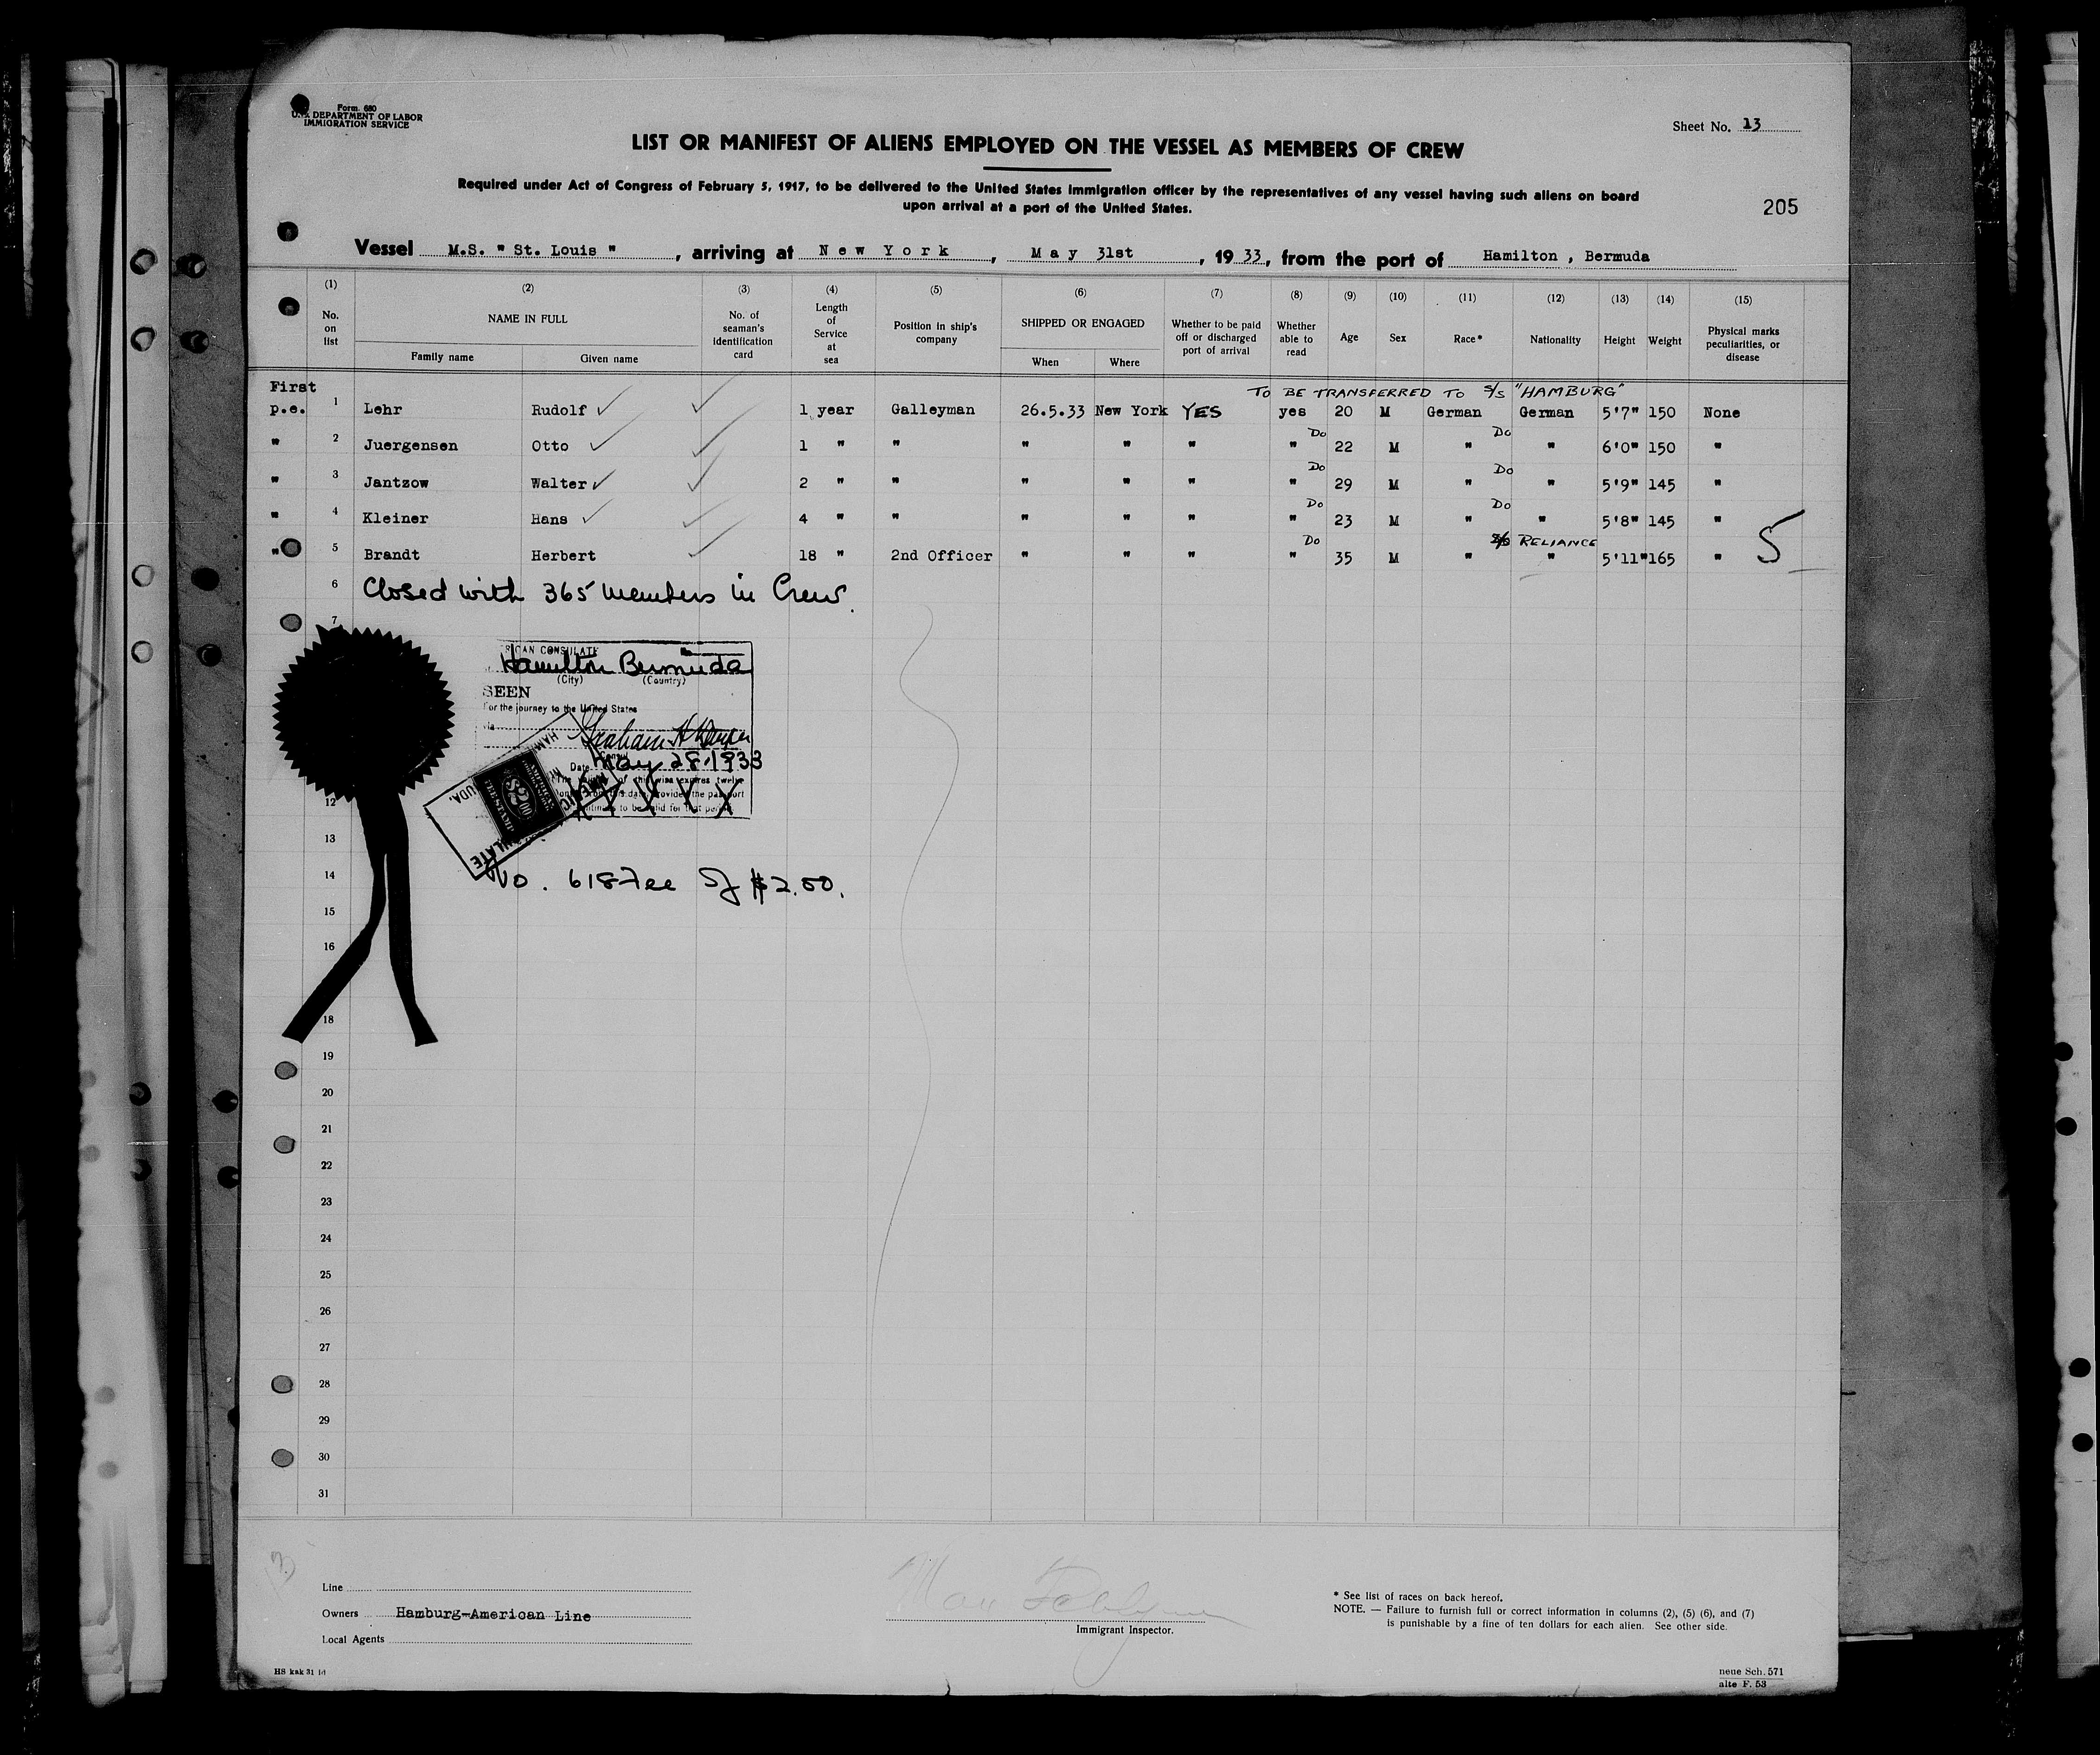 Form. 680
U.S. DEPARTMENT OF LABOR
IMMIGRATION SERVICE
Sheet No. 13
LIST OR MANIFEST OF ALIENS EMPLOYED ON THE VESSEL AS MEMBERS OF CREW
Required under Act of Congress of February 5, 1917, to be delivered to the United States Immigration officer by the representatives of any vessel having such aliens on board
upon arrival at a port of the United States.
205
Vessel M.S. " St. Louis " , arriving at New York , May 31st , 1933, from the port of Hamilton , Bermuda
(1) (2) (3) (4) (5) (6) (7) (8) (9) (10) (11) (12) (13) (14) (15)
No. on list
NAME IN FULL
Family name Given name
No. of seaman's identification card
Length of Service at sea
Position in ship's company
SHIPPED OR ENGAGED
When Where
Whether to be paid off or discharged port of arrival
Whether able to read
Age
Sex
Race*
Nationality
Height
Weight
Physical marks peculiarities, or disease
TO BE TRANSFERRED TO S/S "HAMBURG"
First
p.e. 1 Lehr Rudolf ✓ ✓ 1 year Galleyman 26.5.33 New York YES yes 20 M German German 5'7" 150 None
Do Do
" 2 Juergensen Otto ✓ ✓ 1 " " " " " " 22 M " " 6'0" 150 "
Do Do
" 3 Jantzow Walter ✓ ✓ 2 " " " " " " 29 M " " 5'9" 145 "
Do Do
" 4 Kleiner Hans ✓ ✓ 4 " " " " " " 23 M " " 5'8" 145 "
Do S/S RELIANCE
" 5 Brandt Herbert ✓ 18 " 2nd Officer " " " " 35 M " " 5'11" 165 " 5
6 Closed with 365 members in Crew.
7
RICAN CONSULATE
Hamilton Bermuda
(City) (Country)
SEEN
For the journey to the United States
via
Graham H
Consul
Date May 28, 1933
The validity of this visa expires twelve
provided the passport
to be valid for that
$2.00
No. 618 Fee of $2.00.
12
13
14
15
16
18
19
20
21
22
23
24
25
26
27
28
29
30
31
Line
Owners Hamburg-American Line
Local Agents
Immigrant Inspector.
* See list of races on back hereof.
NOTE. — Failure to furnish full or correct information in columns (2), (5) (6), and (7)
is punishable by a fine of ten dollars for each alien. See other side.
HS kak 31
neue Sch. 571
alte F. 53